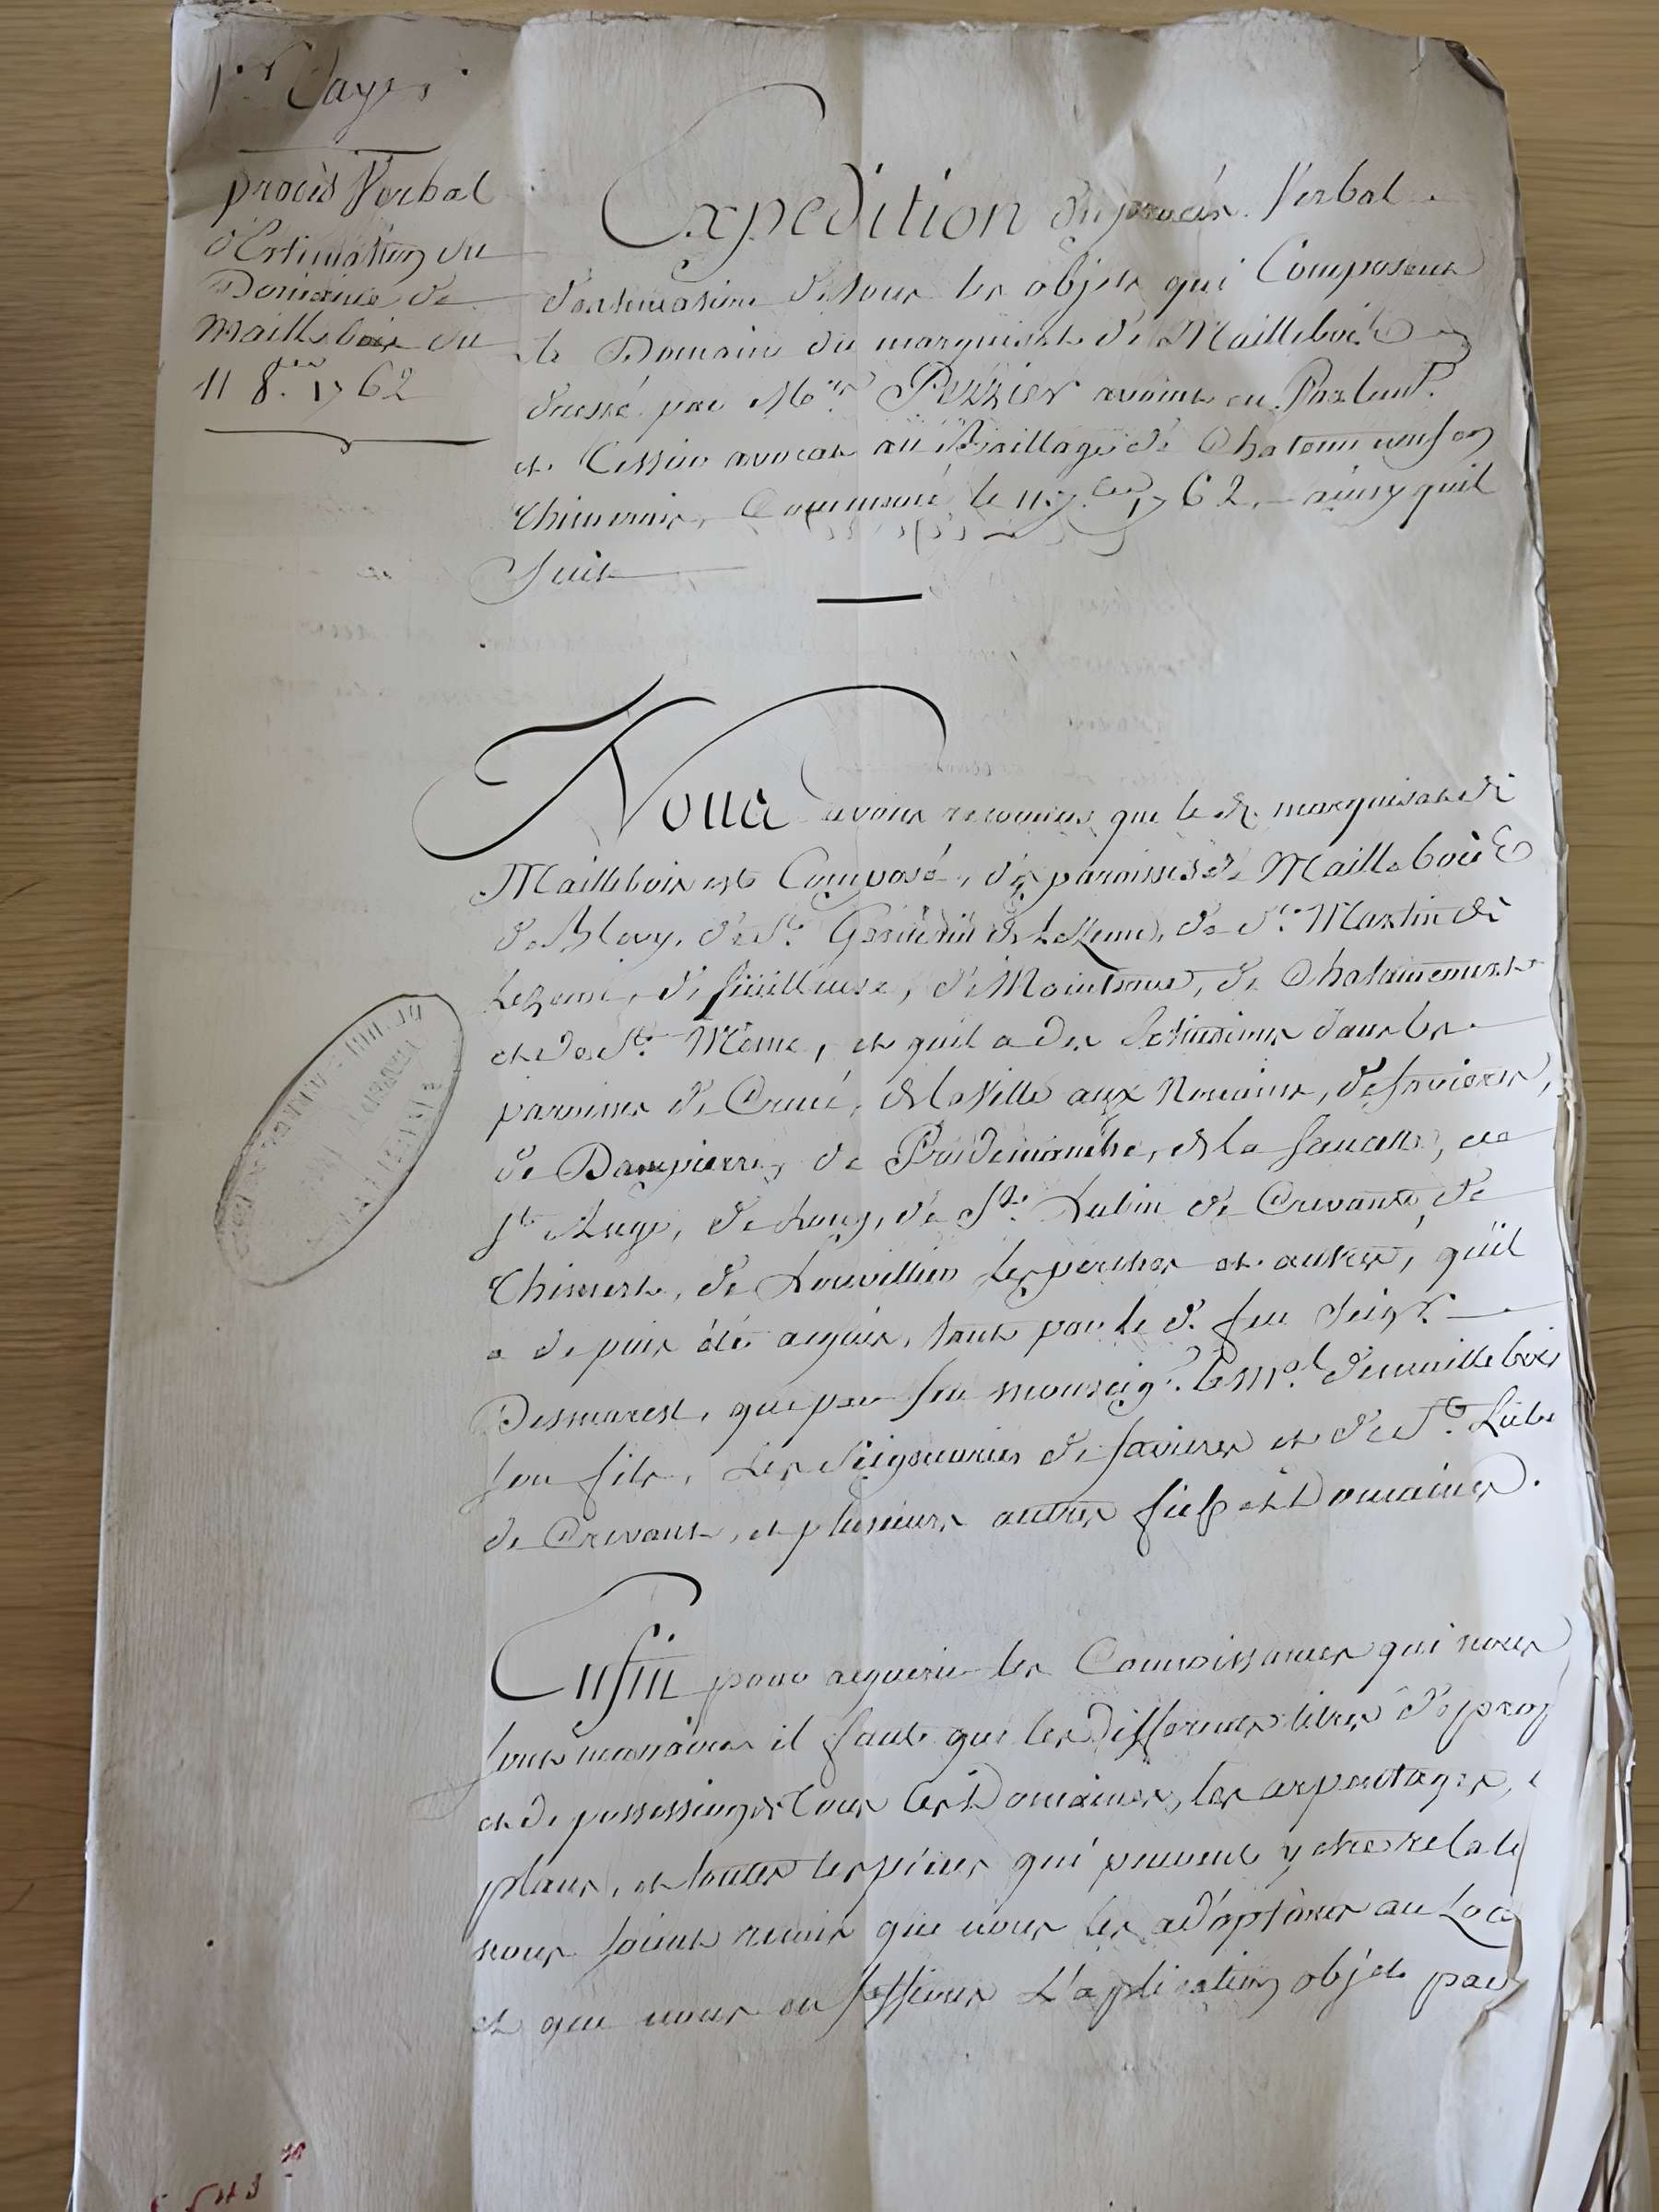 procès Verbal
d'Estimation du
Domaine de
Maillebois du
11 8.bre 1762
Expedition du procès Verbal
d'estimation de tous les objets qui Composent
le Domaine du marquisat de Maillebois
dressé par Me. avocat en Parlemt.
et avocat au Baillage de Chateauneuf en
Thimerais, Commencé le 11 7.bre 1762, ainsy quil
suit
Nous avons reconnus que le d. marquisat de
Maillebois est Composé, des paroisses de Maillebois
de Blevy, de St. de Lezeme, de St. Martin de
Lezeme, de feüilleuse, de Maintrous, de Chataincourt
et de St. Mème, et quil a des dans les
paroisses de Crucé, de la Ville aux Nonains, de favieres,
de Dampierre, de Prudemanche, de la saucelle, de
St. Ange, de Louy, de St. Lubin de Crevant, de
Thimert, de Louvilliers Lesperches et autres, quil
a depuis été acquis, tant par le d. feu Seigr.
Desmarest, que par feu monseigr. le Mal. de maillebois
son fils, Les Seigneuries de favieres et de St. Lubi
de Crevant, et plusieurs autres fiefs et Domaines.
Enfin pour acquerir les Connoissances qui nous
sont necessaires il faut que les differents titres de prop
et de possession de tous les Domaines, les arpentages,
plans, et toutes les pieces qui peuvent y etre relati
nous soient remis que nous les adaptions au Loc
et que nous en fassions L'aplication objet par